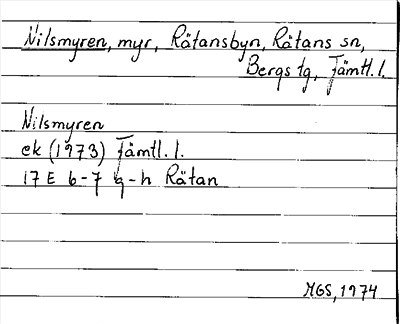 Nilsmyren, myr, Rätansbyn, Rätans sn,
Bergs tg, Jämtl. l.
Nilsmyren
ek (1973) Jämtl. l.
17 E 6-7 g-h Rätan
MGS, 1974